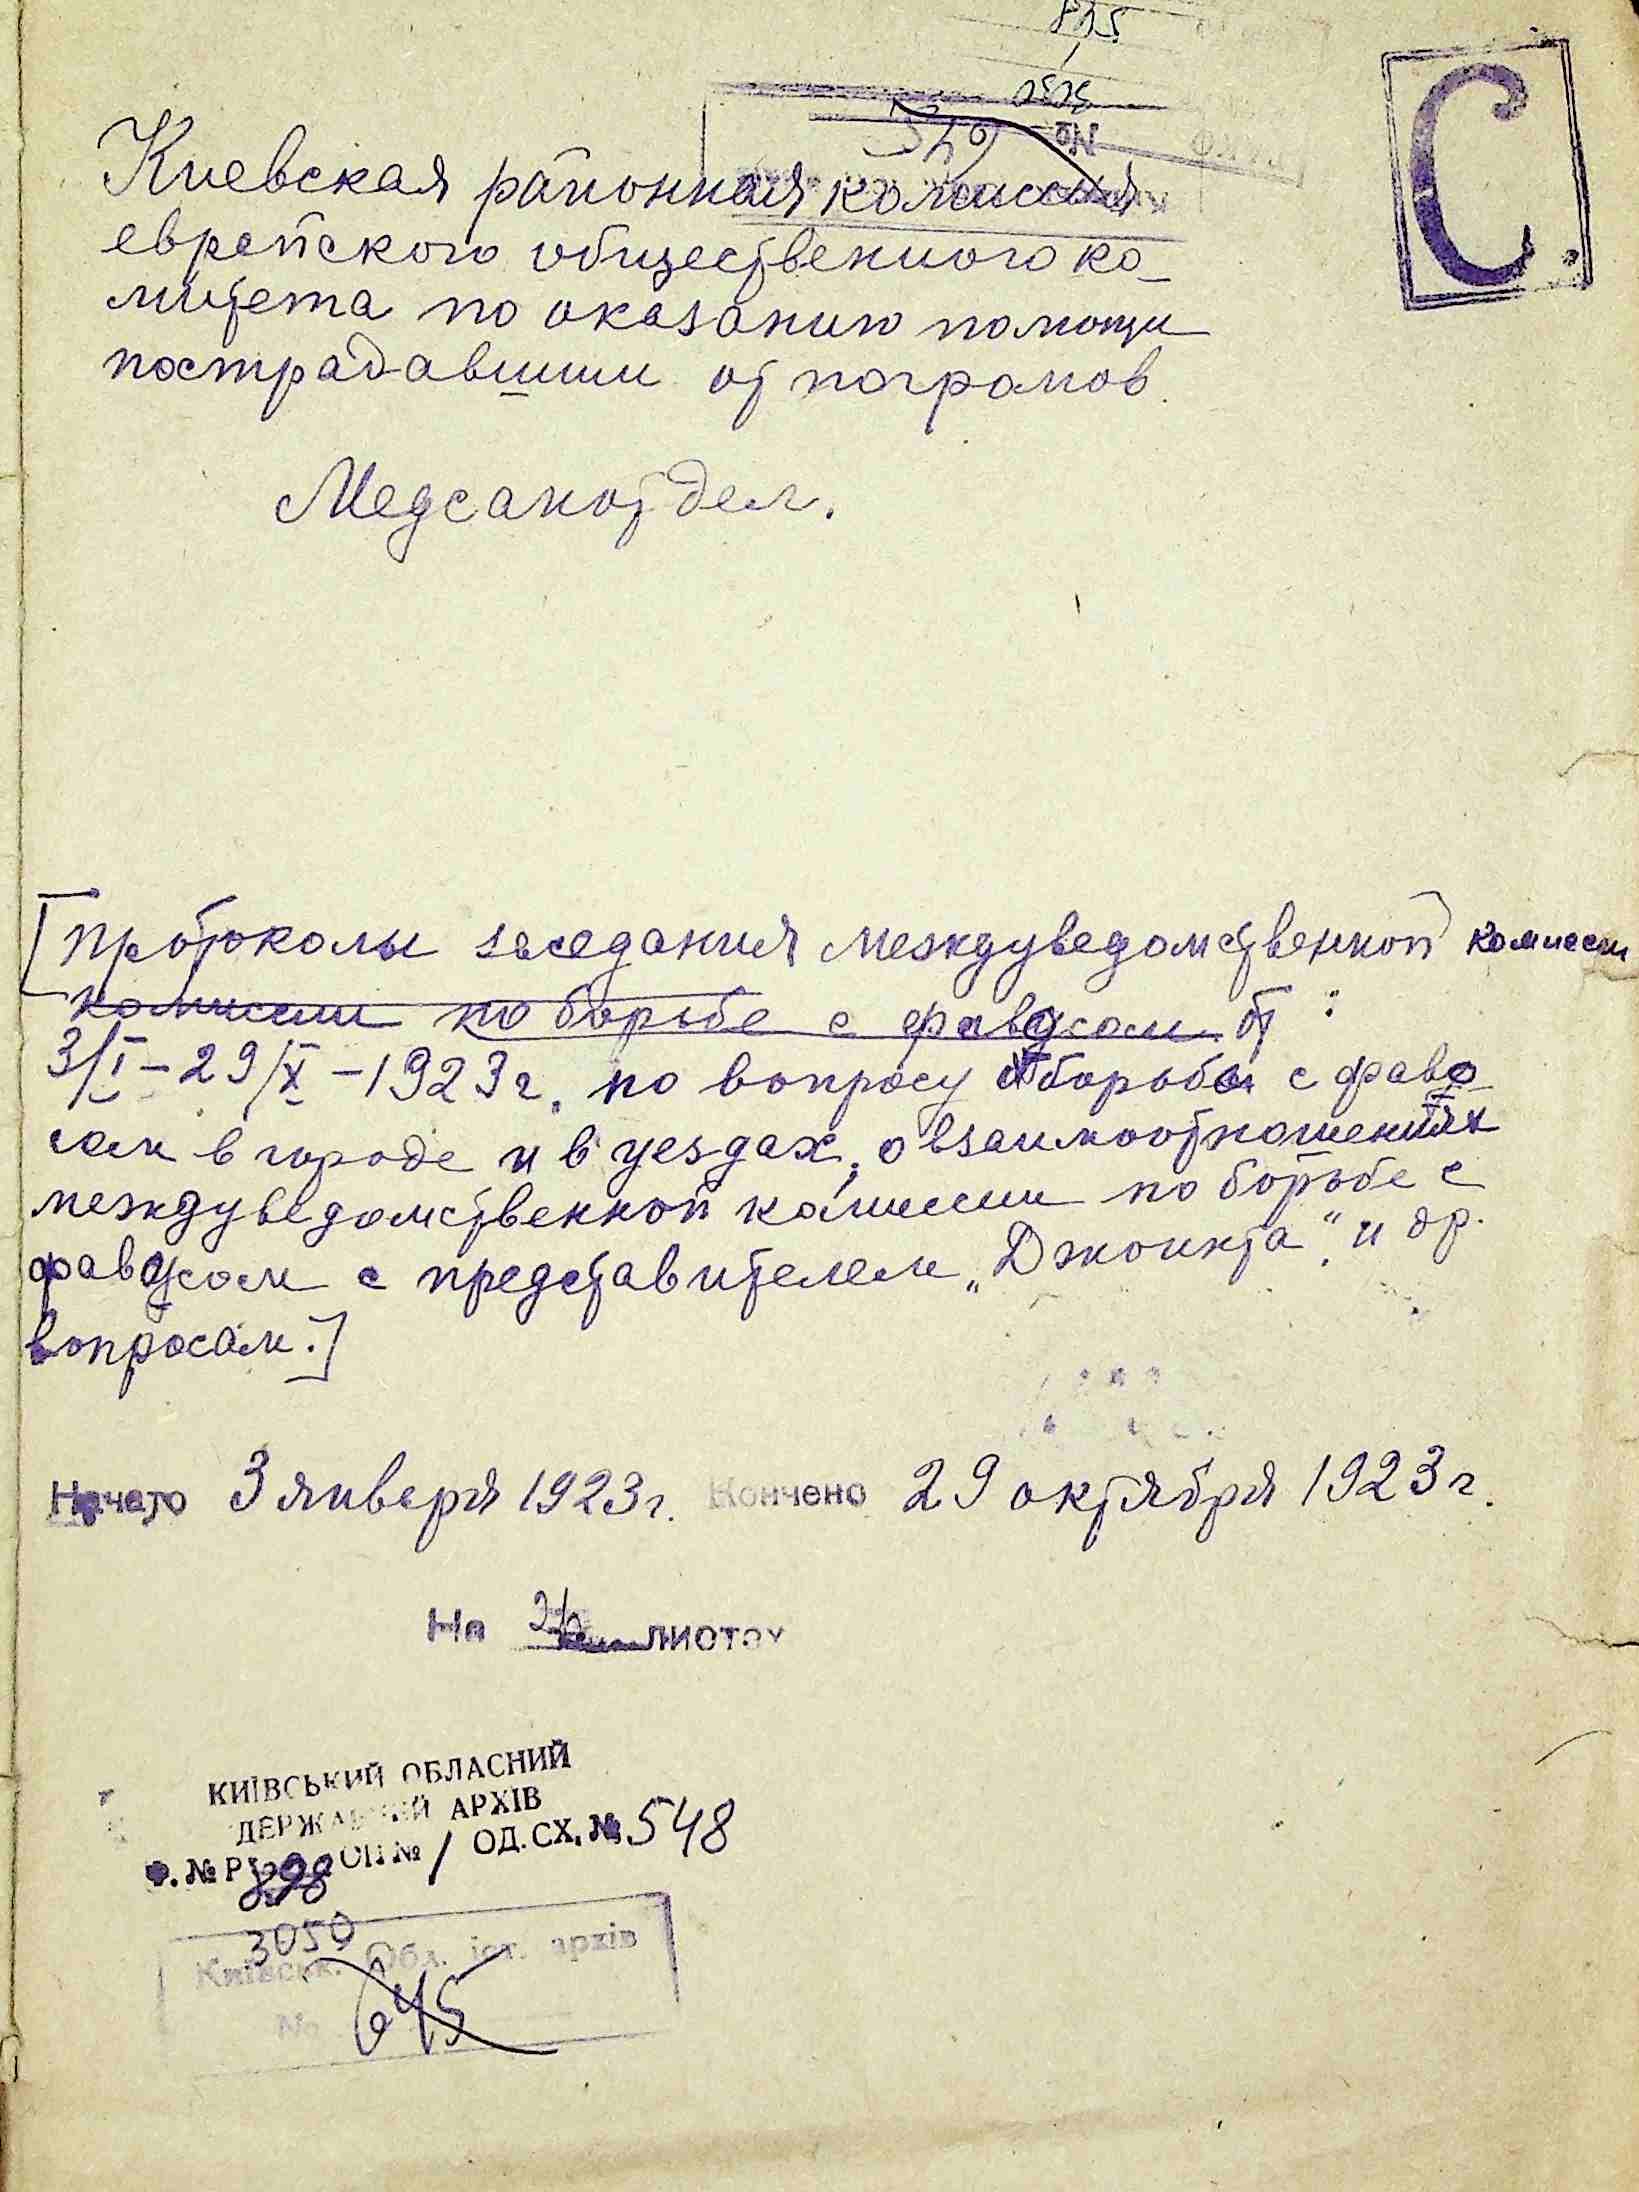 С.
Киевская районная комиссия
еврейского общественного ко-
митета по оказанию помощи
пострадавшим от погромов.
Медсанотдел.
[Протоколы заседания междуведомственной комиссии
комиссии по борьбе с фавусом от
3/I – 29/X – 1923 г. по вопросу борьбы с фаву
сом в городе и в уездах, о взаимоотношениях
междуведомственной комиссии по борьбе с
фавусом с представителем „Джойнта" и др.
вопросам.]
Начато 3 января 1923 г. Кончено 29 октября 1923 г.
На листах
КИЇВСЬКИЙ ОБЛАСНИЙ
ДЕРЖАВНИЙ АРХІВ
Ф. № Р ОП № 1 ОД. СХ. № 548
3050
Київськ. Обл. іст. архів
№ 645